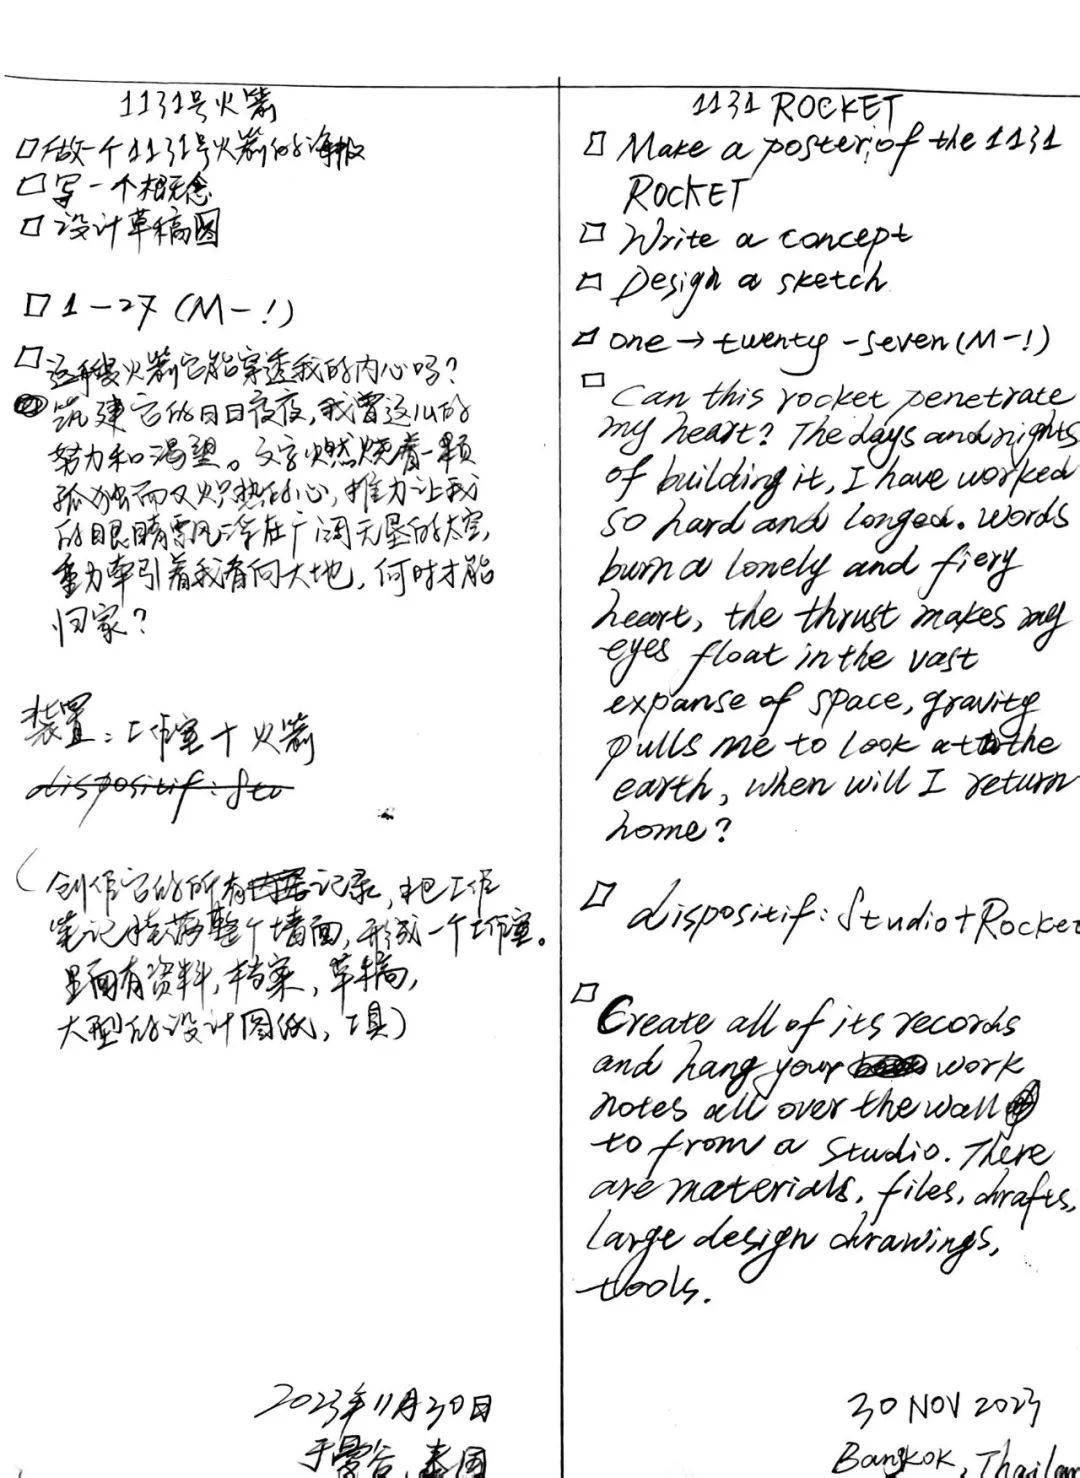 1131号火箭
做一个1131号火箭的海报
写一个概念
设计草稿图
1—27 (M-!)
这种火箭它能穿透我的内心吗?
筑建它的日日夜夜,我曾这么的
努力和渴望。文字燃烧着一颗
孤独而又炽热的心,推力让我
的眼睛飘浮在广阔无垠的太空,
重力牵引着我看向大地,何时才能
归家?
装置:工作室+火箭
dispositif: Stu
(创作它的所有记录,把工作
笔记挂满整个墙面,形成一个工作室。
里面有资料,档案,草稿,
大型的设计图纸,工具)
2023年11月30日
于曼谷,泰国
1131 ROCKET
Make a poster of the 1131
ROCKET
Write a concept
Design a sketch
one → twenty-seven (M-!)
Can this rocket penetrate
my heart? The days and nights
of building it, I have worked
so hard and longed. words
burn a lonely and fiery
heart, the thrust makes my
eyes float in the vast
expanse of space, gravity
pulls me to look at the
earth, when will I return
home?
dispositif: Studio+Rocket
Create all of its records
and hang your work
notes all over the wall
to from a studio. There
are materials, files, drafts,
large design drawings,
tools.
30 NOV 2023
Bangkok, Thailan